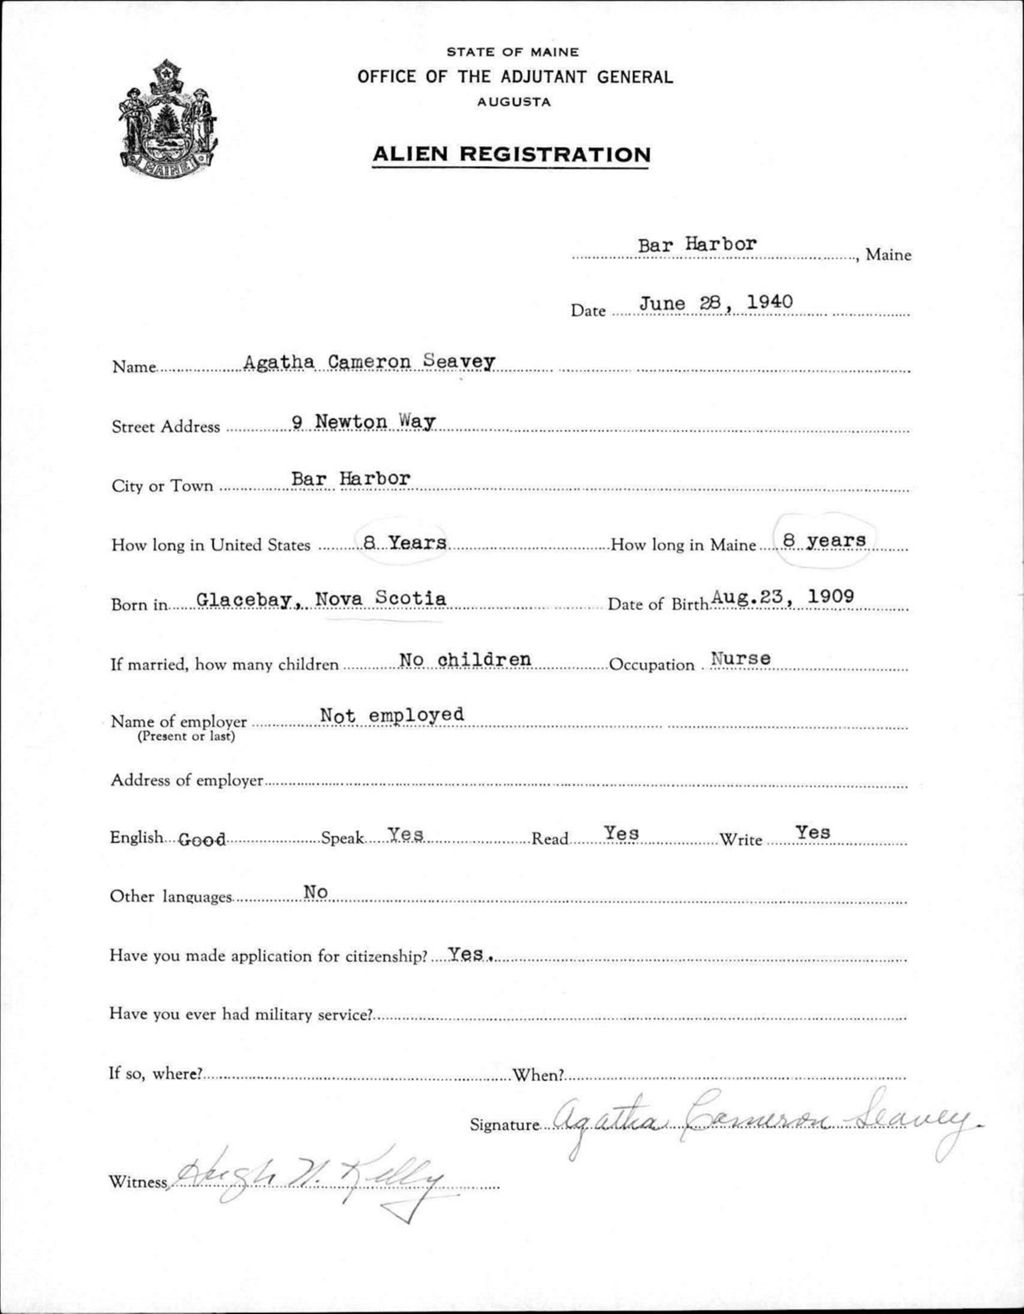 STATE OF MAINE
OFFICE OF THE ADJUTANT GENERAL
AUGUSTA
ALIEN REGISTRATION
MAINE
Bar Harbor, Maine
Date June 28, 1940
Name Agatha Cameron Seavey
Street Address 9 Newton Way
City or Town Bar Harbor
How long in United States 8 Years How long in Maine 8 years
Born in Glacebay, Nova Scotia Date of Birth Aug.23, 1909
If married, how many children No children Occupation Nurse
Name of employer Not employed
(Present or last)
Address of employer
English Good Speak Yes Read Yes Write Yes
Other languages No
Have you made application for citizenship? Yes.
Have you ever had military service?
If so, where? When?
Signature Agatha Cameron Seavey.
Witness Hugh N. Kelly